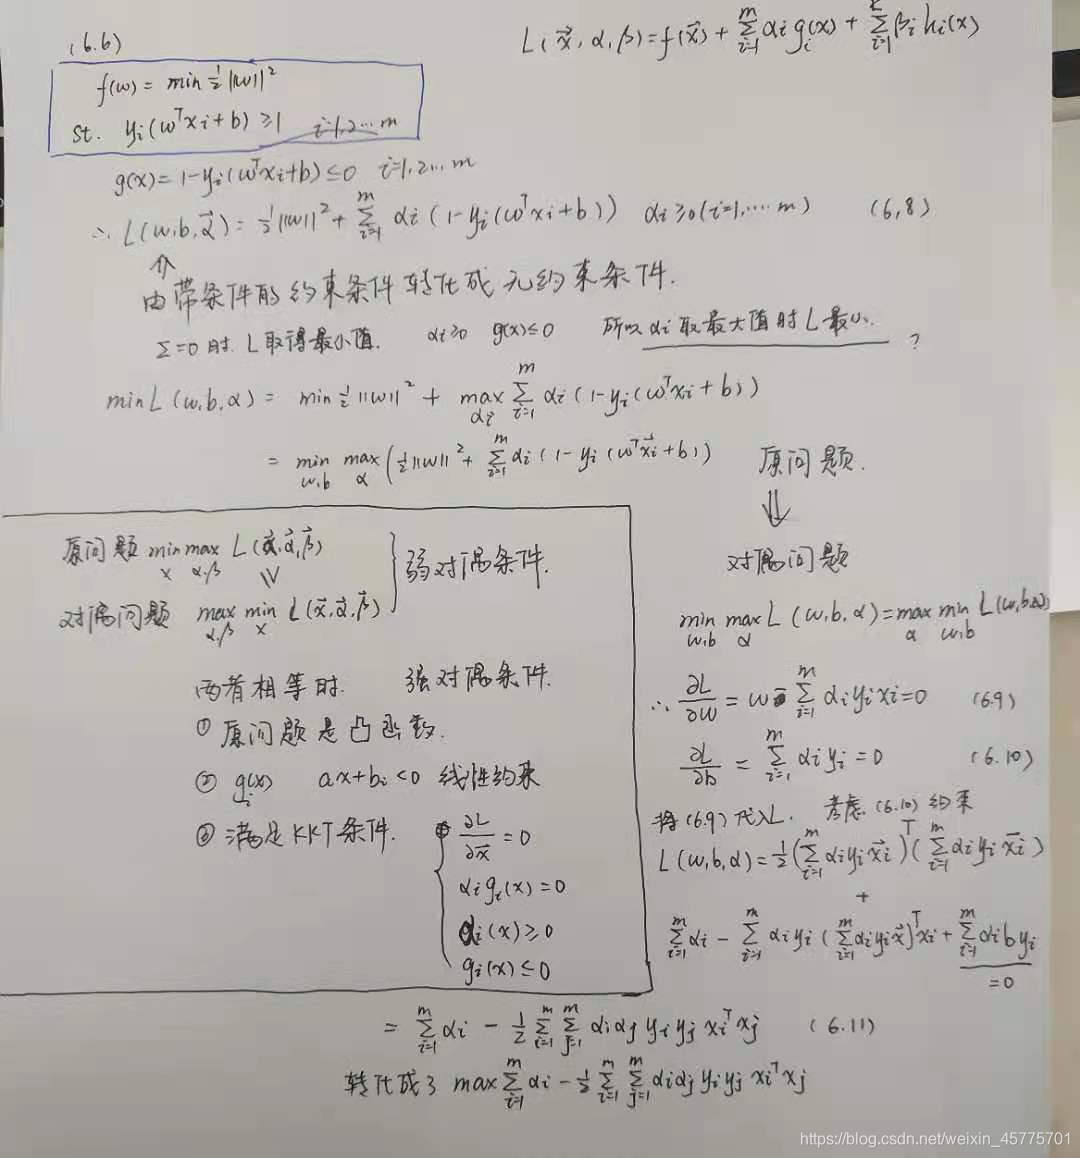 (6.6)
L(x⃗, α, β) = f(x⃗) + Σ_{i=1}^{m} αi gi(x) + Σ_{i=1}^{k} βi hi(x)
f(w) = min ½||w||²
St. yi(wᵀxi+b) ≥1 i=1,2...m
g(x) = 1-yi(wᵀxi+b) ≤0 i=1,2...m
∴ L(w,b,α⃗) = ½||w||² + Σ_{i=1}^{m} αi (1-yi(wᵀxi+b)) αi≥0(i=1,....m) (6,8)
⇑
由带条件的约束条件转化成无约束条件.
Σ=0时. L取得最小值. αi≥0 g(x)≤0 所以αi取最大值时L最小. ?
min L(w,b,α) = min ½||w||² + max_{αi} Σ_{i=1}^{m} αi(1-yi(wᵀxi+b))
= min_{w,b} max_{α} (½||w||² + Σ_{i=1}^{m} αi(1-yi(wᵀx⃗i+b)) 原问题.
⇓
对偶问题
原问题 min_{x} max_{α,β} L(x⃗,α⃗,β⃗)
≥
对偶问题 max_{α,β} min_{x} L(x⃗,α⃗,β⃗)
} 弱对偶条件.
两者相等时. 强对偶条件.
① 原问题是凸函数.
② gi(x) ax+bi<0 线性约束
③ 满足KKT条件.
∂L/∂x⃗ = 0
αi gi(x) = 0
αi(x) ≥ 0
gi(x) ≤ 0
min_{w,b} max_{α} L(w,b,α) = max_{α} min_{w,b} L(w,b,α)
∴ ∂L/∂w = w - Σ_{i=1}^{m} αiyixi = 0 (6.9)
∂L/∂b = Σ_{i=1}^{m} αiyi = 0 (6.10)
将(6.9)代入L. 考虑(6.10)约束
L(w,b,α) = ½(Σ_{i=1}^{m} αiyix⃗i)ᵀ(Σ_{i=1}^{m} αiyix⃗i)
+
Σ_{i=1}^{m} αi - Σ_{i=1}^{m} αiyi(Σ_{i=1}^{m} αiyix⃗)ᵀxi + Σ_{i=1}^{m} αibyi
=0
= Σ_{i=1}^{m} αi - ½ Σ_{i=1}^{m} Σ_{j=1}^{m} αiαj yiyj xiᵀxj (6.11)
转化成了 max Σ_{i=1}^{m} αi - ½ Σ_{i=1}^{m} Σ_{j=1}^{m} αiαj yiyj xiᵀxj
https://blog.csdn.net/weixin_45775701